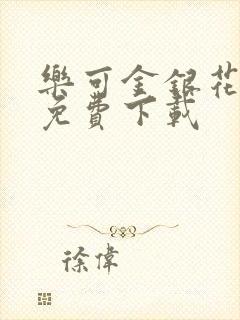 樂可金銀花
免費下載
徐偉